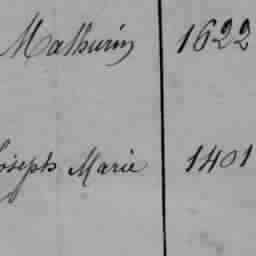 Mathurin 1622
Joseph Marie 1401